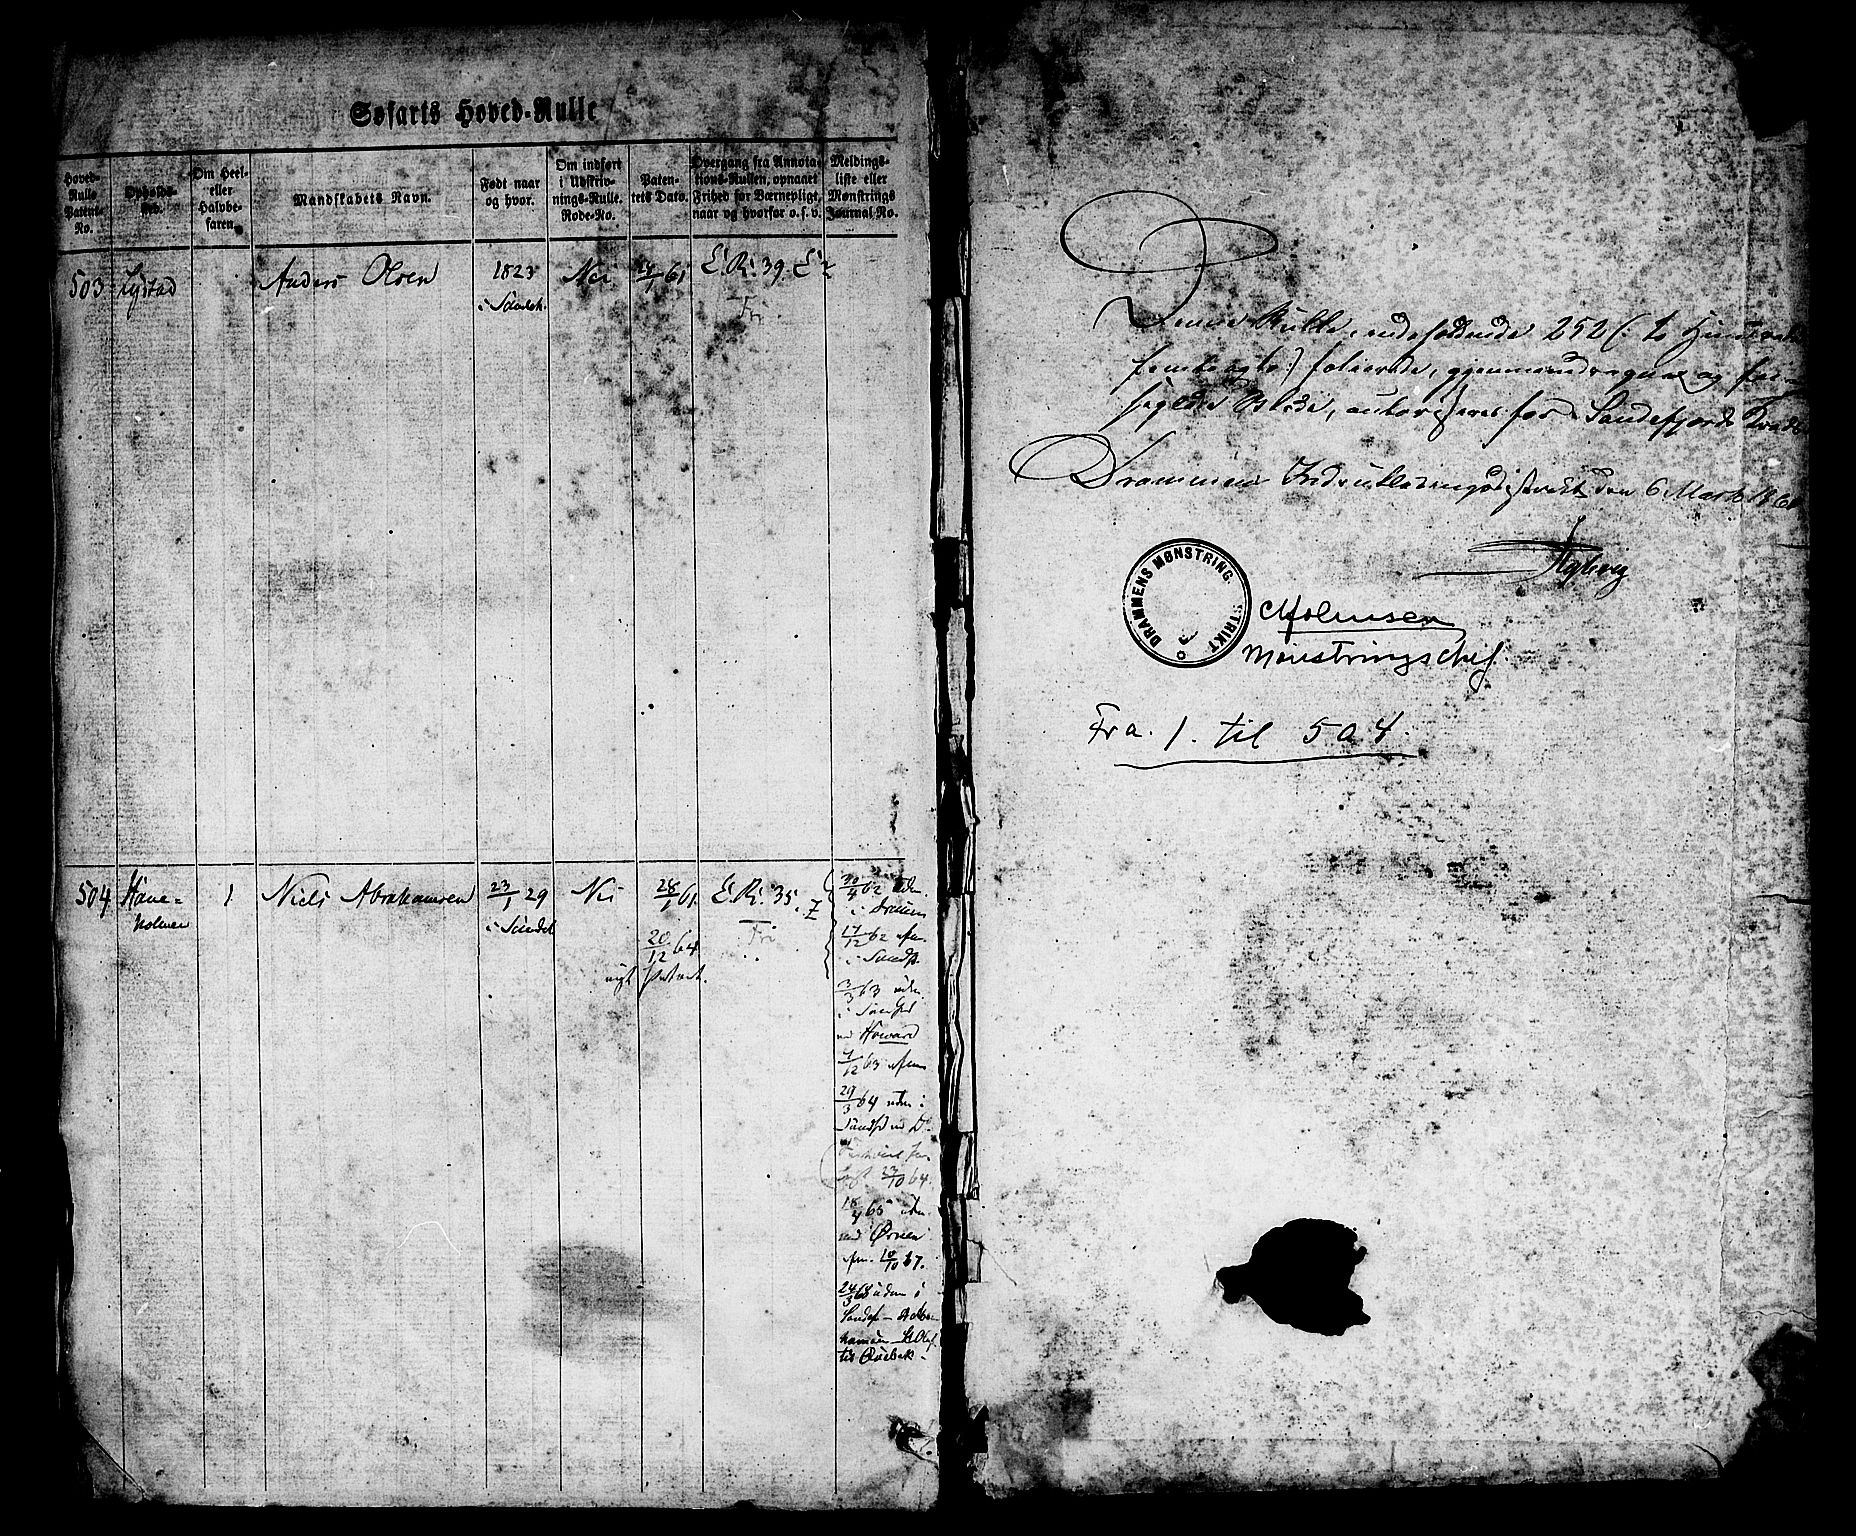 Søfarts Hoved-Rulle
Hoved-
Rulle
Patent-
No.
Opholds-
Sted.
Om Heel-
eller
Halvbe-
faren.
Mandskabets Navn.
Født naar
og hvor.
Om indført
i Udskriv-
nings-Rulle.
Rode-No.
Paten-
tets Dato.
Overgang fra Annota-
tions-Rullen, opnaaet
Frihed for Værnepligt,
naar og hvorfor o. s. v.
Meldings-
liste eller
Mønstrings
Journal No.
503
Lystad
Anders Olsen
1823
i Sandeh.
Nei
61
E. R. 39.
Fri
504
Have-
holmen
1
Niels Abrahamsen
23/1 29
i Sandeh
Nei
28/1 61
20/12 64
nyt Patent.
E. R. 35.
Fri
62 uden
i Dramm
17/12 62 afm.
i Sandfj.
3/3 63 uden
i Sandfj
m Howard
63 afm
29/3 64 uden i
Sandfj m D.
23/10 64.
65 uden
med Ørnen
afm. 10/10 67.
24/3 68 uden i
Sandef
St Olaf
til Quebek
Denne Rulle, indeholdende 252 (: to Hundrede
femti og to :) folierede, gjennemdragne og for-
seglede Blade, autoriseres for Sandefjords Kreds
Drammens Indrulleringsdistrict den 6 Marts 1861
DRAMMENS MØNSTRING STRIKT
Mønstringschef.
Fra. 1. til 504.